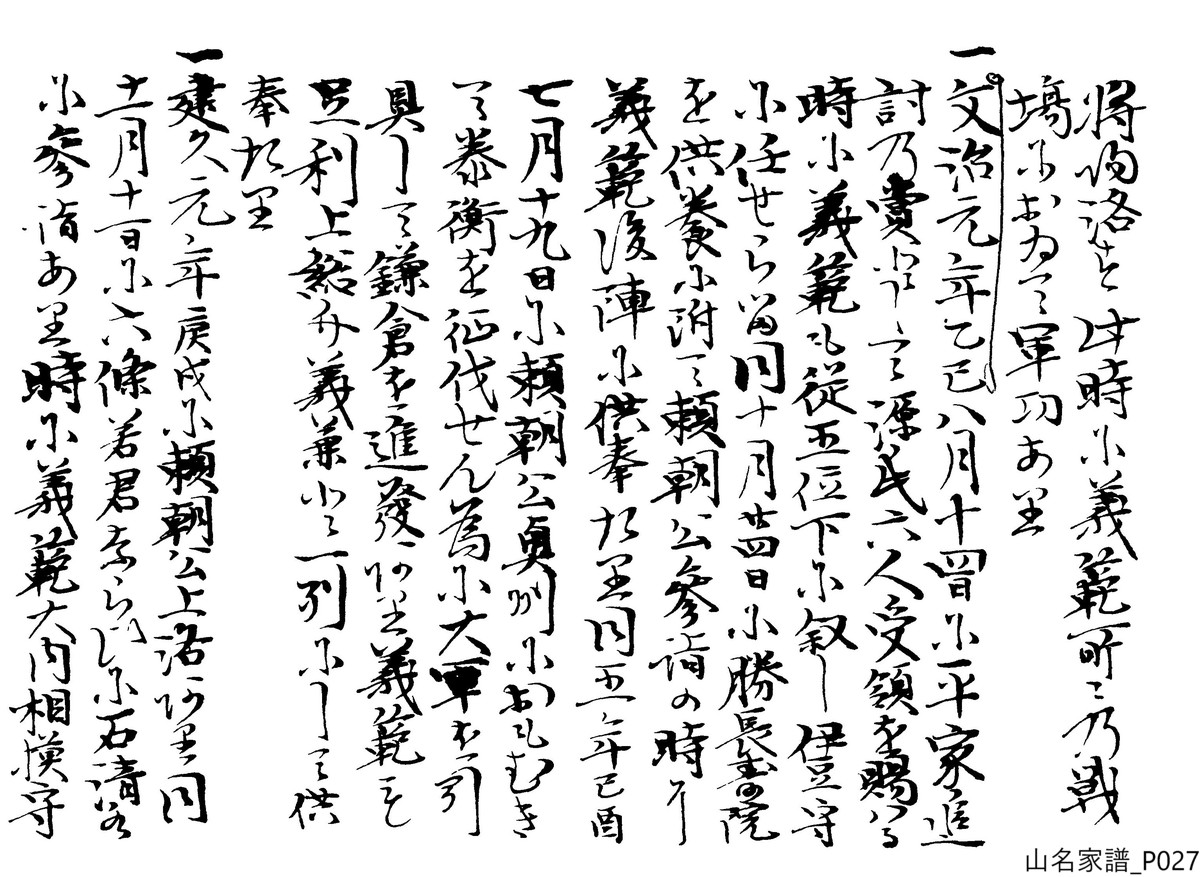 将帰洛す此時に義範所々乃戦
場におゐて軍功あり
一文治元年乙巳八月十四日に平家追
討乃賞として源氏六人受領を賜はる
時に義範も従五位下に叙し伊豆守
に任せらる同十月廿四日に勝長寿院
を供養に附て頼朝公参詣の時に
義範後陣に供奉たり同五年己酉
七月十九日に頼朝公奥州におもむき
て泰衡を征伐せん為に大軍を引
具して鎌倉を進發ありし義範も
足利上総介義兼と一列にして供
奉たり
一建久元年庚戌に頼朝公上洛あり同
十一月十一日に六條若君ならひに石清水
に参詣あり時に義範大内相模守
山名家譜_P027